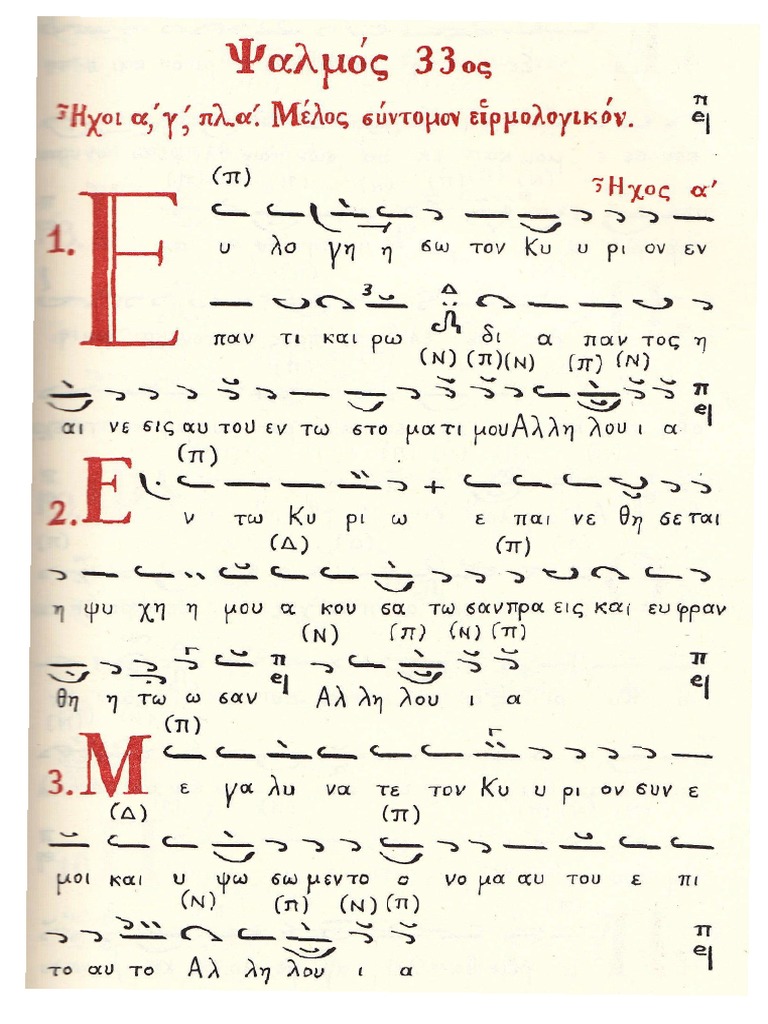 Ψαλμός 33ος
Ἦχοι α΄, γ΄, πλ.α΄. Μέλος σύντομον εἱρμολογικόν.
Ἦχος α΄
(π)
1. Ε υ λο γη η σω τον Κυ υ ρι ον εν
παν τι και ρω δι α παν τος η
(Ν) (π) (Ν) (π) (Ν)
αι νε σις αυ του εν τω στο μα τι μου Αλ λη λου ι α
(π)
2. Ε ν τω Κυ ρι ω ε παι νε θη σε ται
(Δ) (π)
η ψυ χη η μου α κου σα τω σαν πρα εις και ευ φραν
(Ν) (π) (Ν) (π)
θη η τω ω σαν Αλ λη λου ι α
(π)
3. Μ ε γα λυ να τε τον Κυ υ ρι ον συν ε
(Δ) (π)
μοι και υ ψω σω μεν το ο νο μα αυ του ε πι
(Ν) (π) (Ν) (π)
το αυ το Αλ λη λου ι α